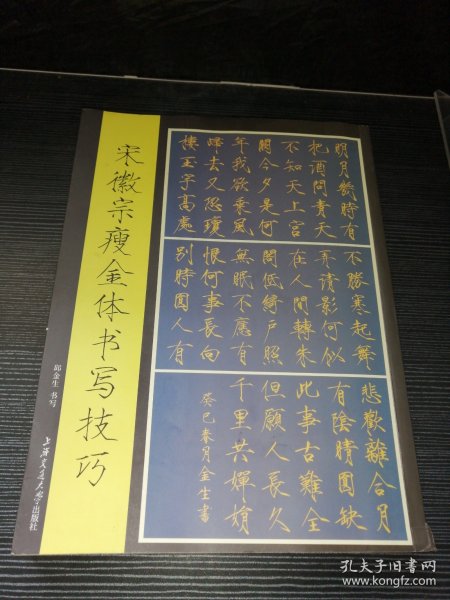 宋徽宗瘦金体书写技巧
邱金生 书写
上海交通大学出版社
明月幾時有
把酒問青天
不知天上宮
闕今夕是何
年我欲乘風
歸去又恐瓊
樓玉宇高處
不勝寒起舞
弄清影何似
在人間轉朱
閣低綺戶照
無眠不應有
恨何事長向
別時圓人有
悲歡離合月
有陰晴圓缺
此事古難全
但願人長久
千里共嬋娟
癸巳春月金生書
孔夫子旧书网
www.kongfz.com